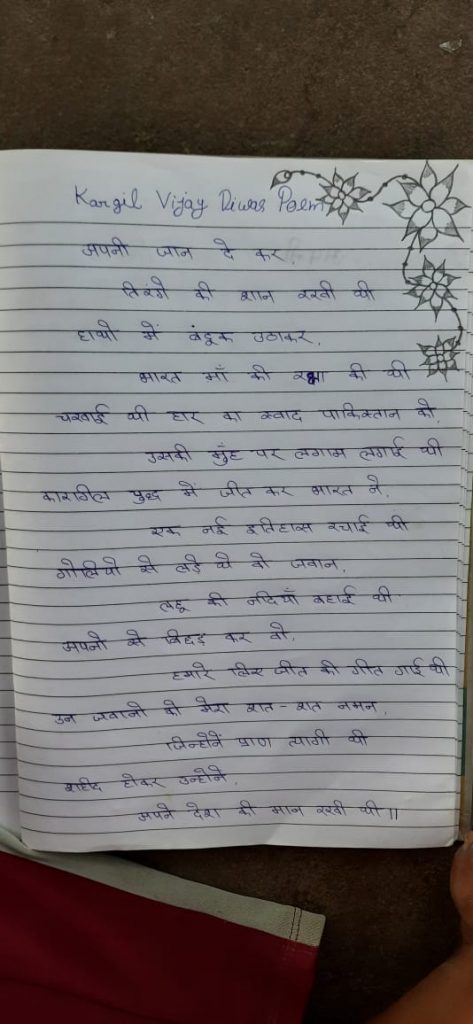 Kargil Vijay Diwas Poem
अपनी जान दे कर,
तिरंगे की शान रखी थी
हाथो में बंदूक उठाकर,
भारत माँ की रक्षा की थी
चखाई थी हार का स्वाद पाकिस्तान को,
उसकी मुँह पर लगाम लगाई थी
कारगिल युद्ध में जीत कर भारत ने,
एक नई इतिहास रचाई थी
गोलियो से लड़े थे वो जवान,
लहू की नदियाँ बहाई थी
अपनो से बिछड़ कर वो,
हमारे लिए जीत की गीत गाई थी
उन जवानो को मेरा शत-शत नमन,
जिन्होनें प्राण त्यागी थी
शहीद होकर उन्होने,
अपने देश की मान रखी थी ||